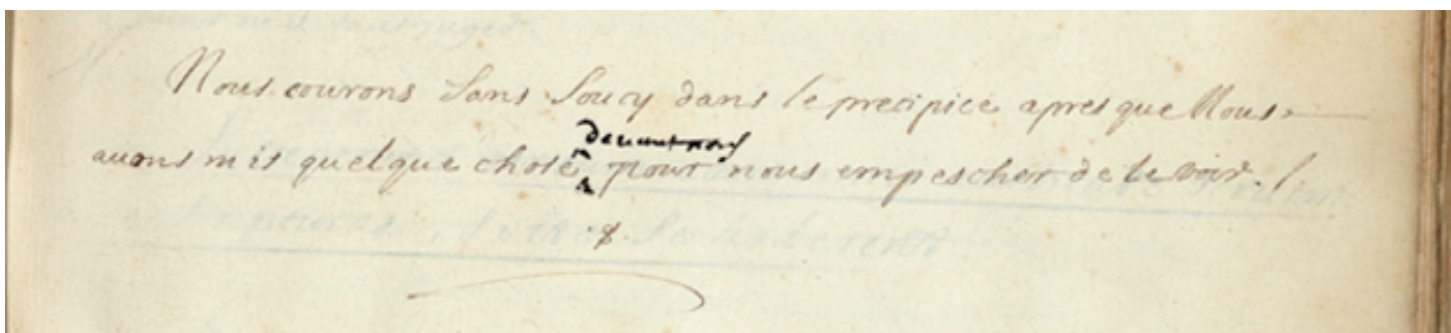 Nous courons sans soucy dans le precipice apres que Nous
deuant nous
auons mis quelque chose pour nous empescher de le voir.